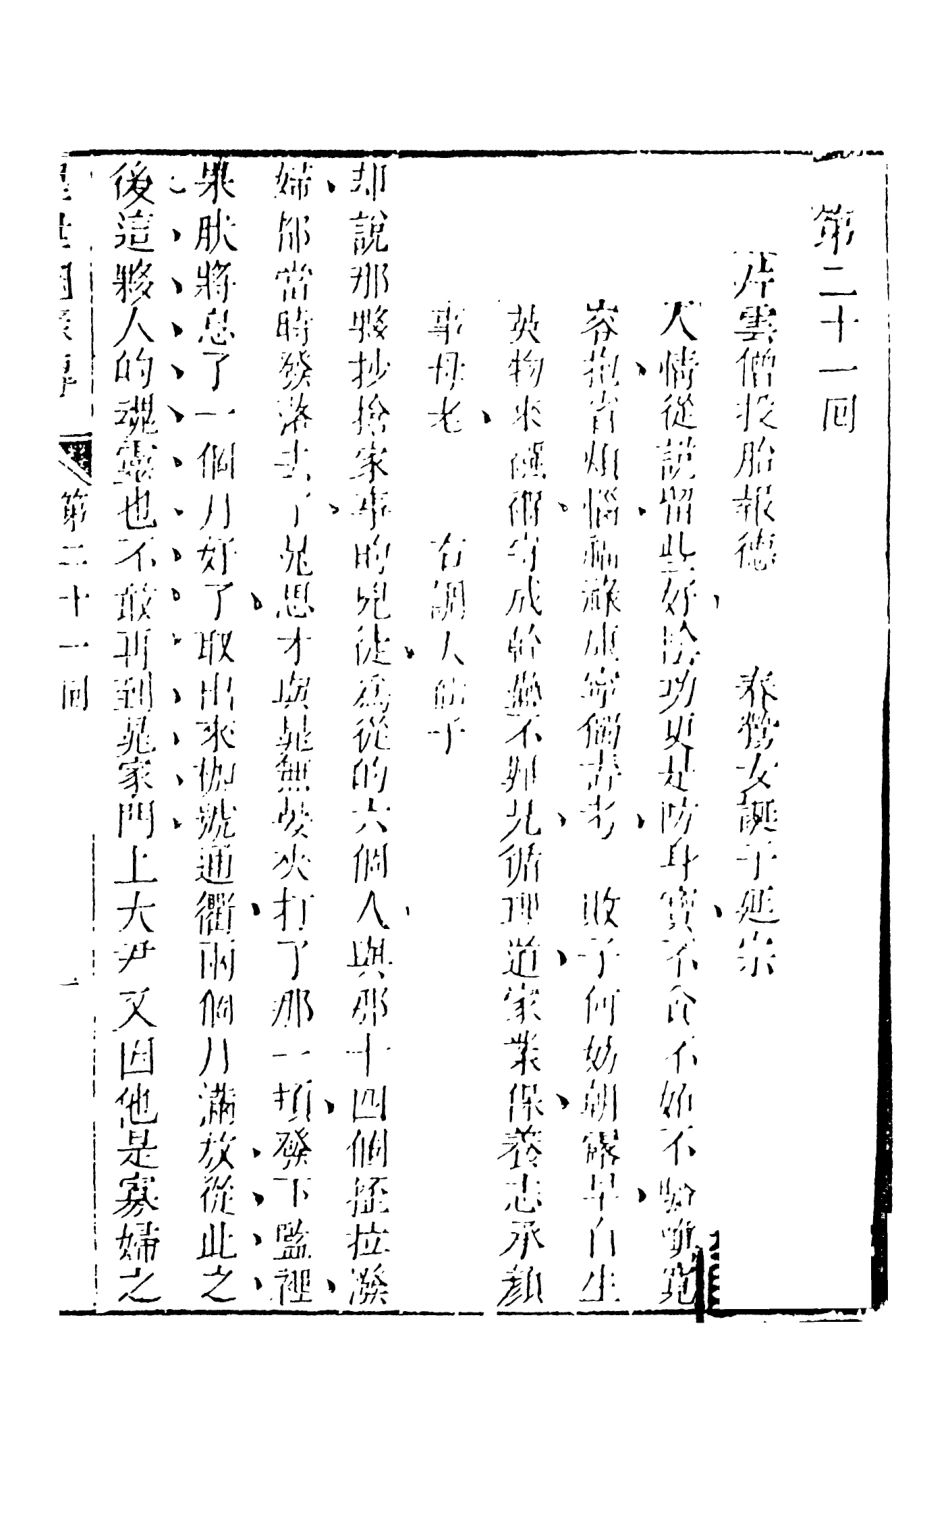 第二十一回
片雲僧投胎報德　春鶯女誕子延宗
天情從說留些好陰功更是防身寶不貪不妬不驕嗔寬
容抱省煩惱福祿康寧偏壽考　收子何妨朝露早自生
英物來種衚守成幹蠱不歸兄循理道家業保養志承顏
事母老　右調人仙子
却說那夥抄搶家事的兇徒為從的六個人與那十四個捱拉潑
婦都當時發落去了晁思才與晁無晏夾打了那一頓發下監裡
果肰將息了一個月好了取出來枷號通衢兩個月滿放從此之
後這夥人的魂靈也不敢再到晁家門上大尹又因他是寡婦之
醒世姻緣傳　第二十一回　一